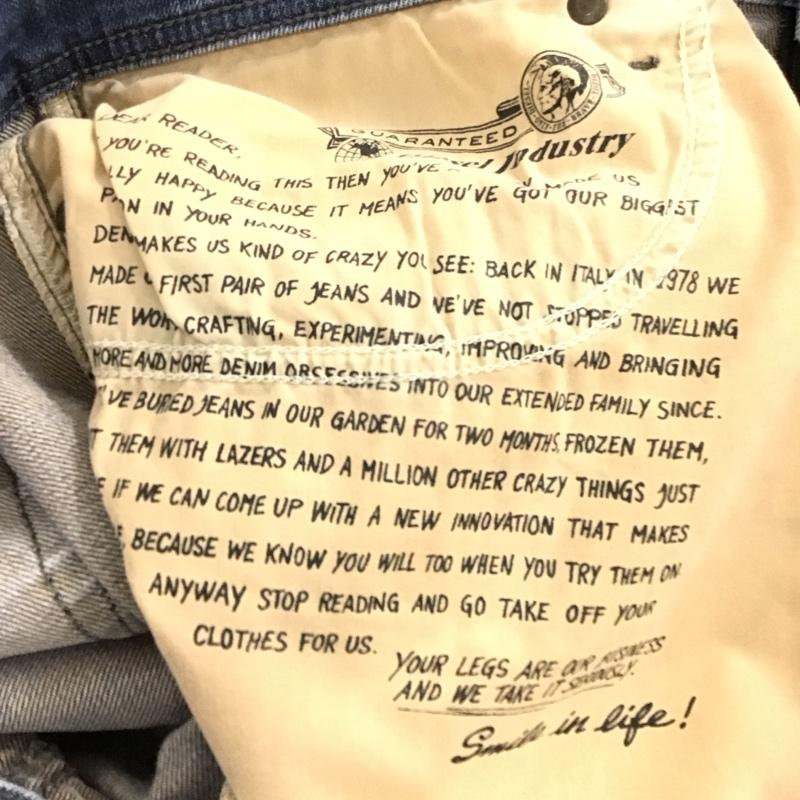 GUARANTEED
Industry
READER,
YOU'RE READING THIS THEN YOU'VE MADE US
LLY HAPPY BECAUSE IT MEANS YOU'VE GOT OUR BIGGEST
IN YOUR HANDS.
MAKES US KIND OF CRAZY YOU SEE: BACK IN ITALY IN 1978 WE
MADE FIRST PAIR OF JEANS AND WE'VE NOT STOPPED TRAVELLING
THE CRAFTING, EXPERIMENTING, IMPROVING AND BRINGING
MORE AND MORE DENIM OBSESSIVES INTO OUR EXTENDED FAMILY SINCE.
'VE BURIED JEANS IN OUR GARDEN FOR TWO MONTHS, FROZEN THEM,
T THEM WITH LAZERS AND A MILLION OTHER CRAZY THINGS JUST
E IF WE CAN COME UP WITH A NEW INNOVATION THAT MAKES
BECAUSE WE KNOW YOU WILL TOO WHEN YOU TRY THEM ON
ANYWAY STOP READING AND GO TAKE OFF YOUR
CLOTHES FOR US.
YOUR LEGS ARE OUR BUSINESS
AND WE TAKE IT SERIOUSLY.
Smile in life!